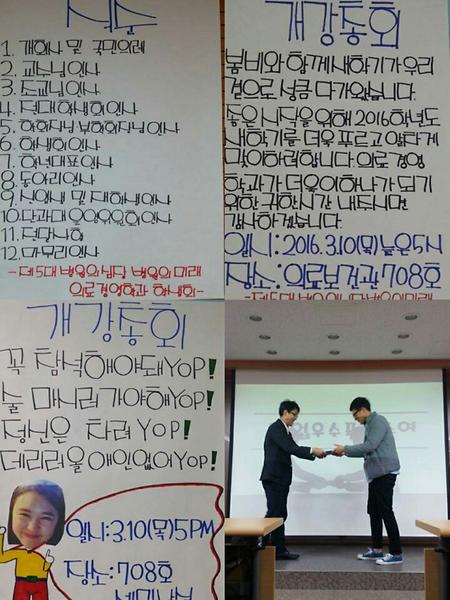 식순
1. 개회사 및 국민의례
2. 교수님인사
3. 조교님인사
4. 전대 학생회인사
5. 학회장님 부학회장님인사
6. 학생회 인사
7. 학년대표인사
8. 동아리인사
9. 신입생 및 재학생인사
11. 전달사항
12. 마무리인사
-제5대 병원의 심장 병원의 미래
의료경영학과 학생회-
개강총회
봄비와 함께 새학기가 우리
곁으로 성큼 다가왔습니다.
좋은 시작을 위해 2016학년도
새학기를 더욱 푸르고 알차게
맞이하려합니다. 의료경영
학과가 더욱이 하나가 되기
위한 귀한시간 내주시면
감사하겠습니다.
일시:2016.3.10(목)늦은5시
장소:의료보건관708호
-제5대 병원의 심장 병원의 미래
개강총회
꼭 참석해야돼YOP!
술 마시러가야해YOP!
정신은 차려YOP!
데리러올 애인없어YOP!
일시:3.10(목)5PM
장소:708호
세미나실